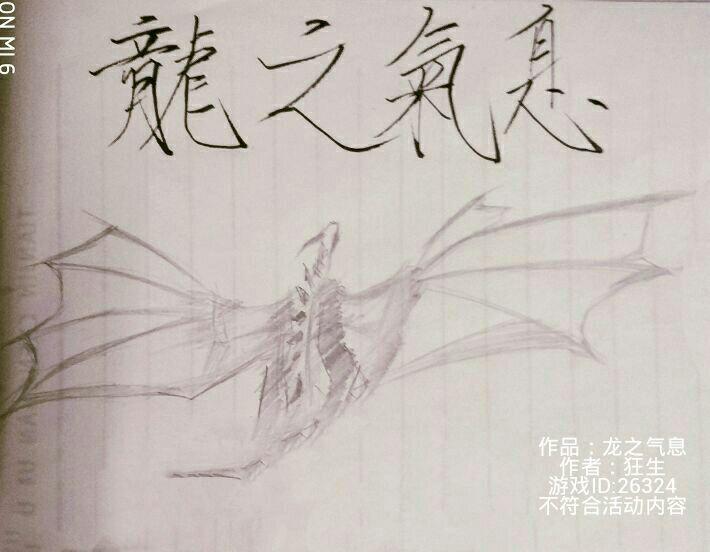 龍之氣息
ON MI 6
作品：龙之气息
作者：狂生
游戏ID:26324
不符合活动内容